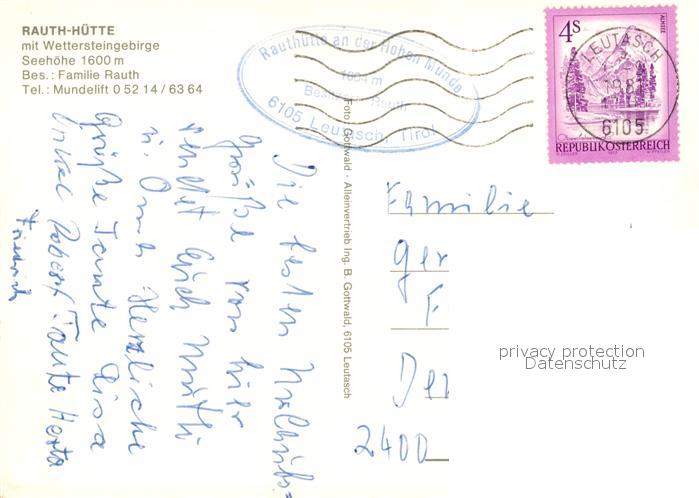 RAUTH-HÜTTE
mit Wettersteingebirge
Seehöhe 1600 m
Bes.: Familie Rauth
Tel.: Mundelift 0 52 14 / 63 64
Rauthhütte an der Hohen Munde
Besitzer: Rauth
6105 Leutasch, Tirol
4S
ALMSEE
LEUTASCH
6105
REPUBLIK ÖSTERREICH
Die besten Urlaubs=
grüße von hier
sendet Euch Mutti
u. Omi Herzliche
Grüße Tante Lisa
Onkel Robert Tante Herta
Friedrich
Foto: Gottwald · Alleinvertrieb Ing. B. Gottwald, 6105 Leutasch
Familie
Ger
F
Der
2400
privacy protection
Datenschutz